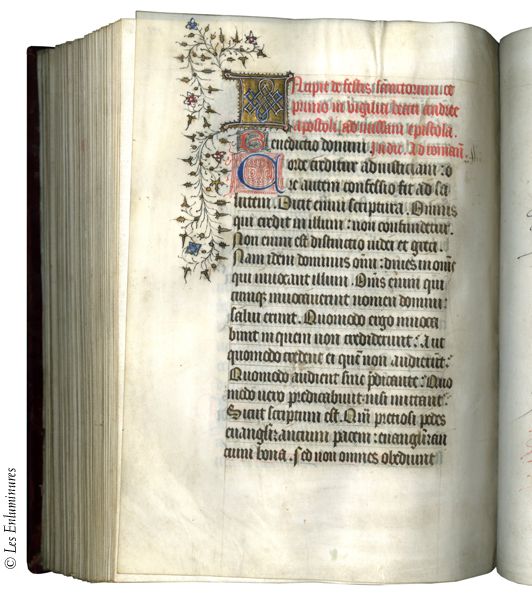 Incipit de festis sanctorum: et
primo in vigilia beati andree
apostoli. ad missam epistola.
Benedictio domini. In die. Ad romanͦ.
Corde creditur ad iusticiam: o
re autem confessio fit ad sa
lutem. Dicit enim scriptura. Omnis
qui credit in illum: non confundetur.
Non enim est distinctio iudei et greci.
Nam idem dominus om̄i: diues in om̄e
qui inuocant illum. Om̄s enim qui
cumqꝫ inuocauerint nomen domini:
salui erunt. Quomodo ergo inuoca
bunt in quem non crediderunt: Aut
quomodo credent ei quē non audierūt:
Quomodo audient sine p̄dicante: Quo
modo uero predicabunt: nisi mittant᷑
Sicut scriptum est. Qm̄ pretiosi pedes
euangelizantium pacem: euangelizan
tium bona. Sed non omnes obediunt
© Les Enluminures